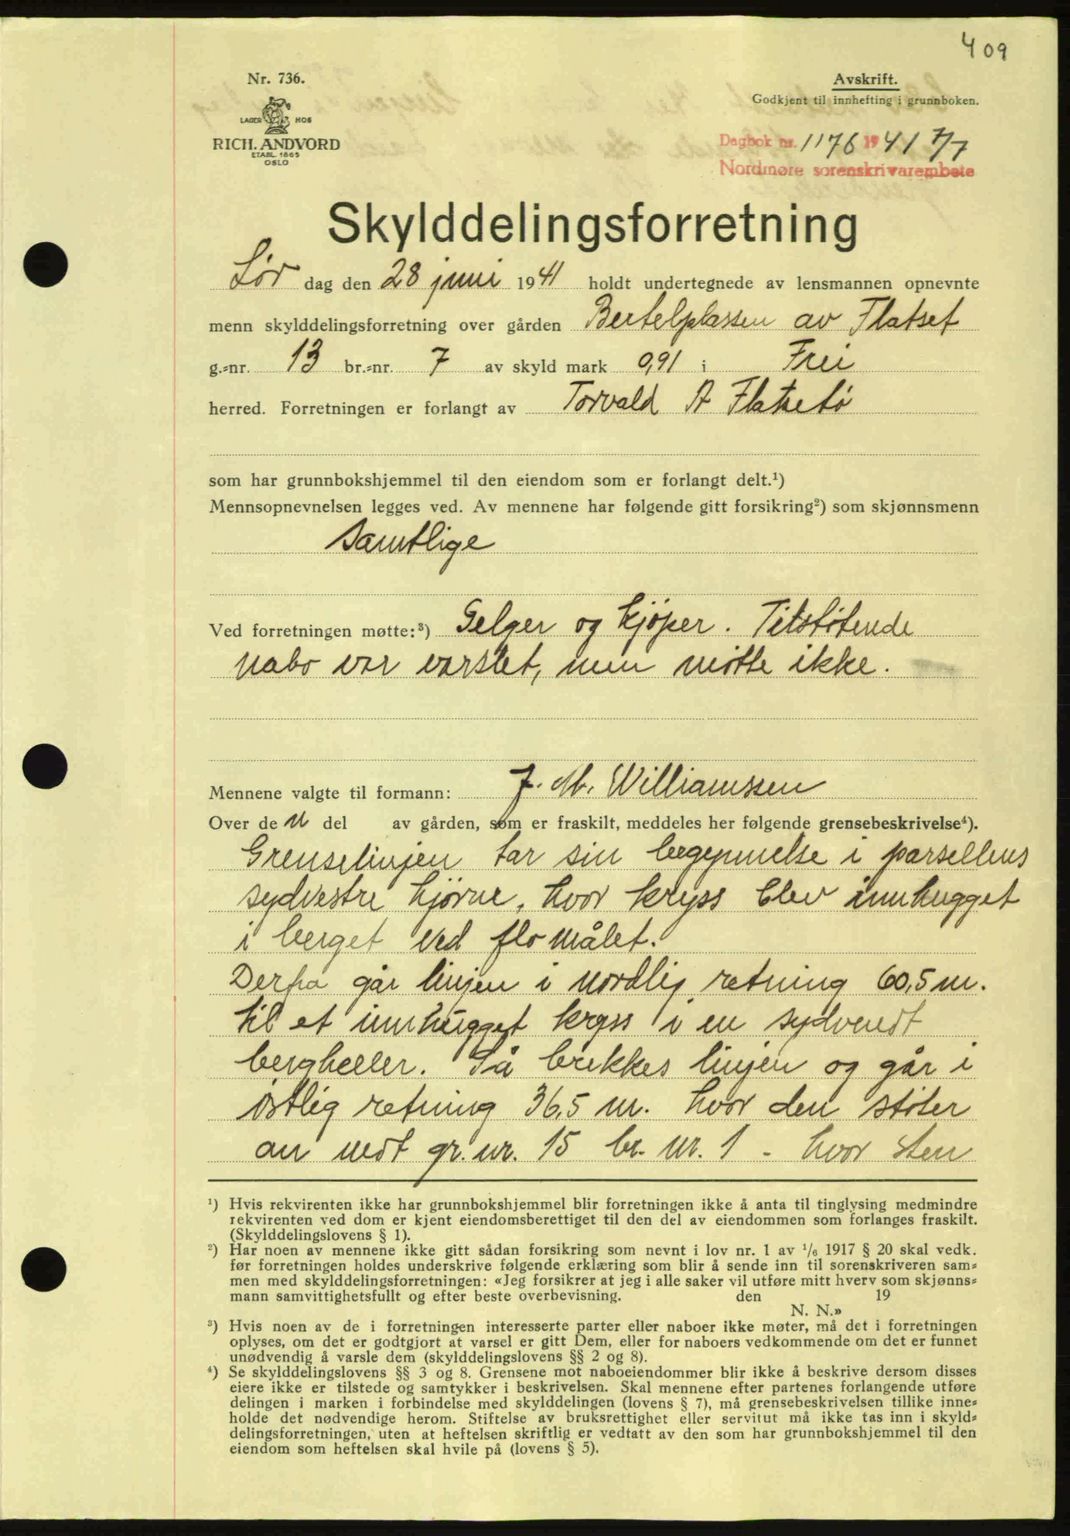 409
Nr. 736.
LAGER HOS
RICH. ANDVORD
ETABL. 1865
OSLO
Avskrift.
Godkjent til innhefting i grunnboken.
Dagbok nr. 1176 1941 7/7
Nordmøre sorenskrivarembete
Skylddelingsforretning
Lørdag den 28 juni 1941 holdt undertegnede av lensmannen opnevnte
menn skylddelingsforretning over gården Bertelplassen av Flatset
g.-nr. 13 br.-nr. 7 av skyld mark 0,91 i Frei
herred. Forretningen er forlangt av Torvald A Flatsetø
som har grunnbokshjemmel til den eiendom som er forlangt delt.¹)
Mennsopnevnelsen legges ved. Av mennene har følgende gitt forsikring²) som skjønnsmenn
Samtlige
Ved forretningen møtte:³) Selger og kjøper. Tilstøtende
nabo var varslet, men møtte ikke.
Mennene valgte til formann: J. M. Williamssen
Over de n del av gården, som er fraskilt, meddeles her følgende grensebeskrivelse⁴).
Grenselinjen tar sin begynnelse i parsellens
sydvestre hjørne, hvor kryss blev innhugget
i berget ved flomålet.
Derfra går linjen i nordlig retning 60,5 m.
til et innhugget kryss i en sydvendt
bergheller. Så brekkes linjen og går i
østlig retning 36,5 m. hvor den støter
an mot gr. nr. 15 br. nr. 1 - hvor sten
¹) Hvis rekvirenten ikke har grunnbokshjemmel blir forretningen ikke å anta til tinglysing medmindre
rekvirenten ved dom er kjent eiendomsberettiget til den del av eiendommen som forlanges fraskilt.
(Skylddelingslovens § 1).
²) Har noen av mennene ikke gitt sådan forsikring som nevnt i lov nr. 1 av ¹/₆ 1917 § 20 skal vedk.
før forretningen holdes underskrive følgende erklæring som blir å sende inn til sorenskriveren sam-
men med skylddelingsforretningen: «Jeg forsikrer at jeg i alle saker vil utføre mitt hverv som skjønns-
mann samvittighetsfullt og efter beste overbevisning. den 19
N. N.»
³) Hvis noen av de i forretningen interesserte parter eller naboer ikke møter, må det i forretningen
oplyses, om det er godtgjort at varsel er gitt Dem, eller for naboers vedkommende om det er funnet
unødvendig å varsle dem (skylddelingslovens §§ 2 og 8).
⁴) Se skylddelingslovens §§ 3 og 8. Grensene mot naboeiendommer blir ikke å beskrive dersom disses
eiere ikke er tilstede og samtykker i beskrivelsen. Skal mennene efter partenes forlangende utføre
delingen i marken i forbindelse med skylddelingen (lovens § 7), må grensebeskrivelsen tillike inne-
holde det nødvendige herom. Stiftelse av bruksrettighet eller servitut må ikke tas inn i skyld-
delingsforretningen, uten at heftelsen skriftlig er vedtatt av den som har grunnbokshjemmel til den
eiendom som heftelsen skal hvile på (lovens § 5).